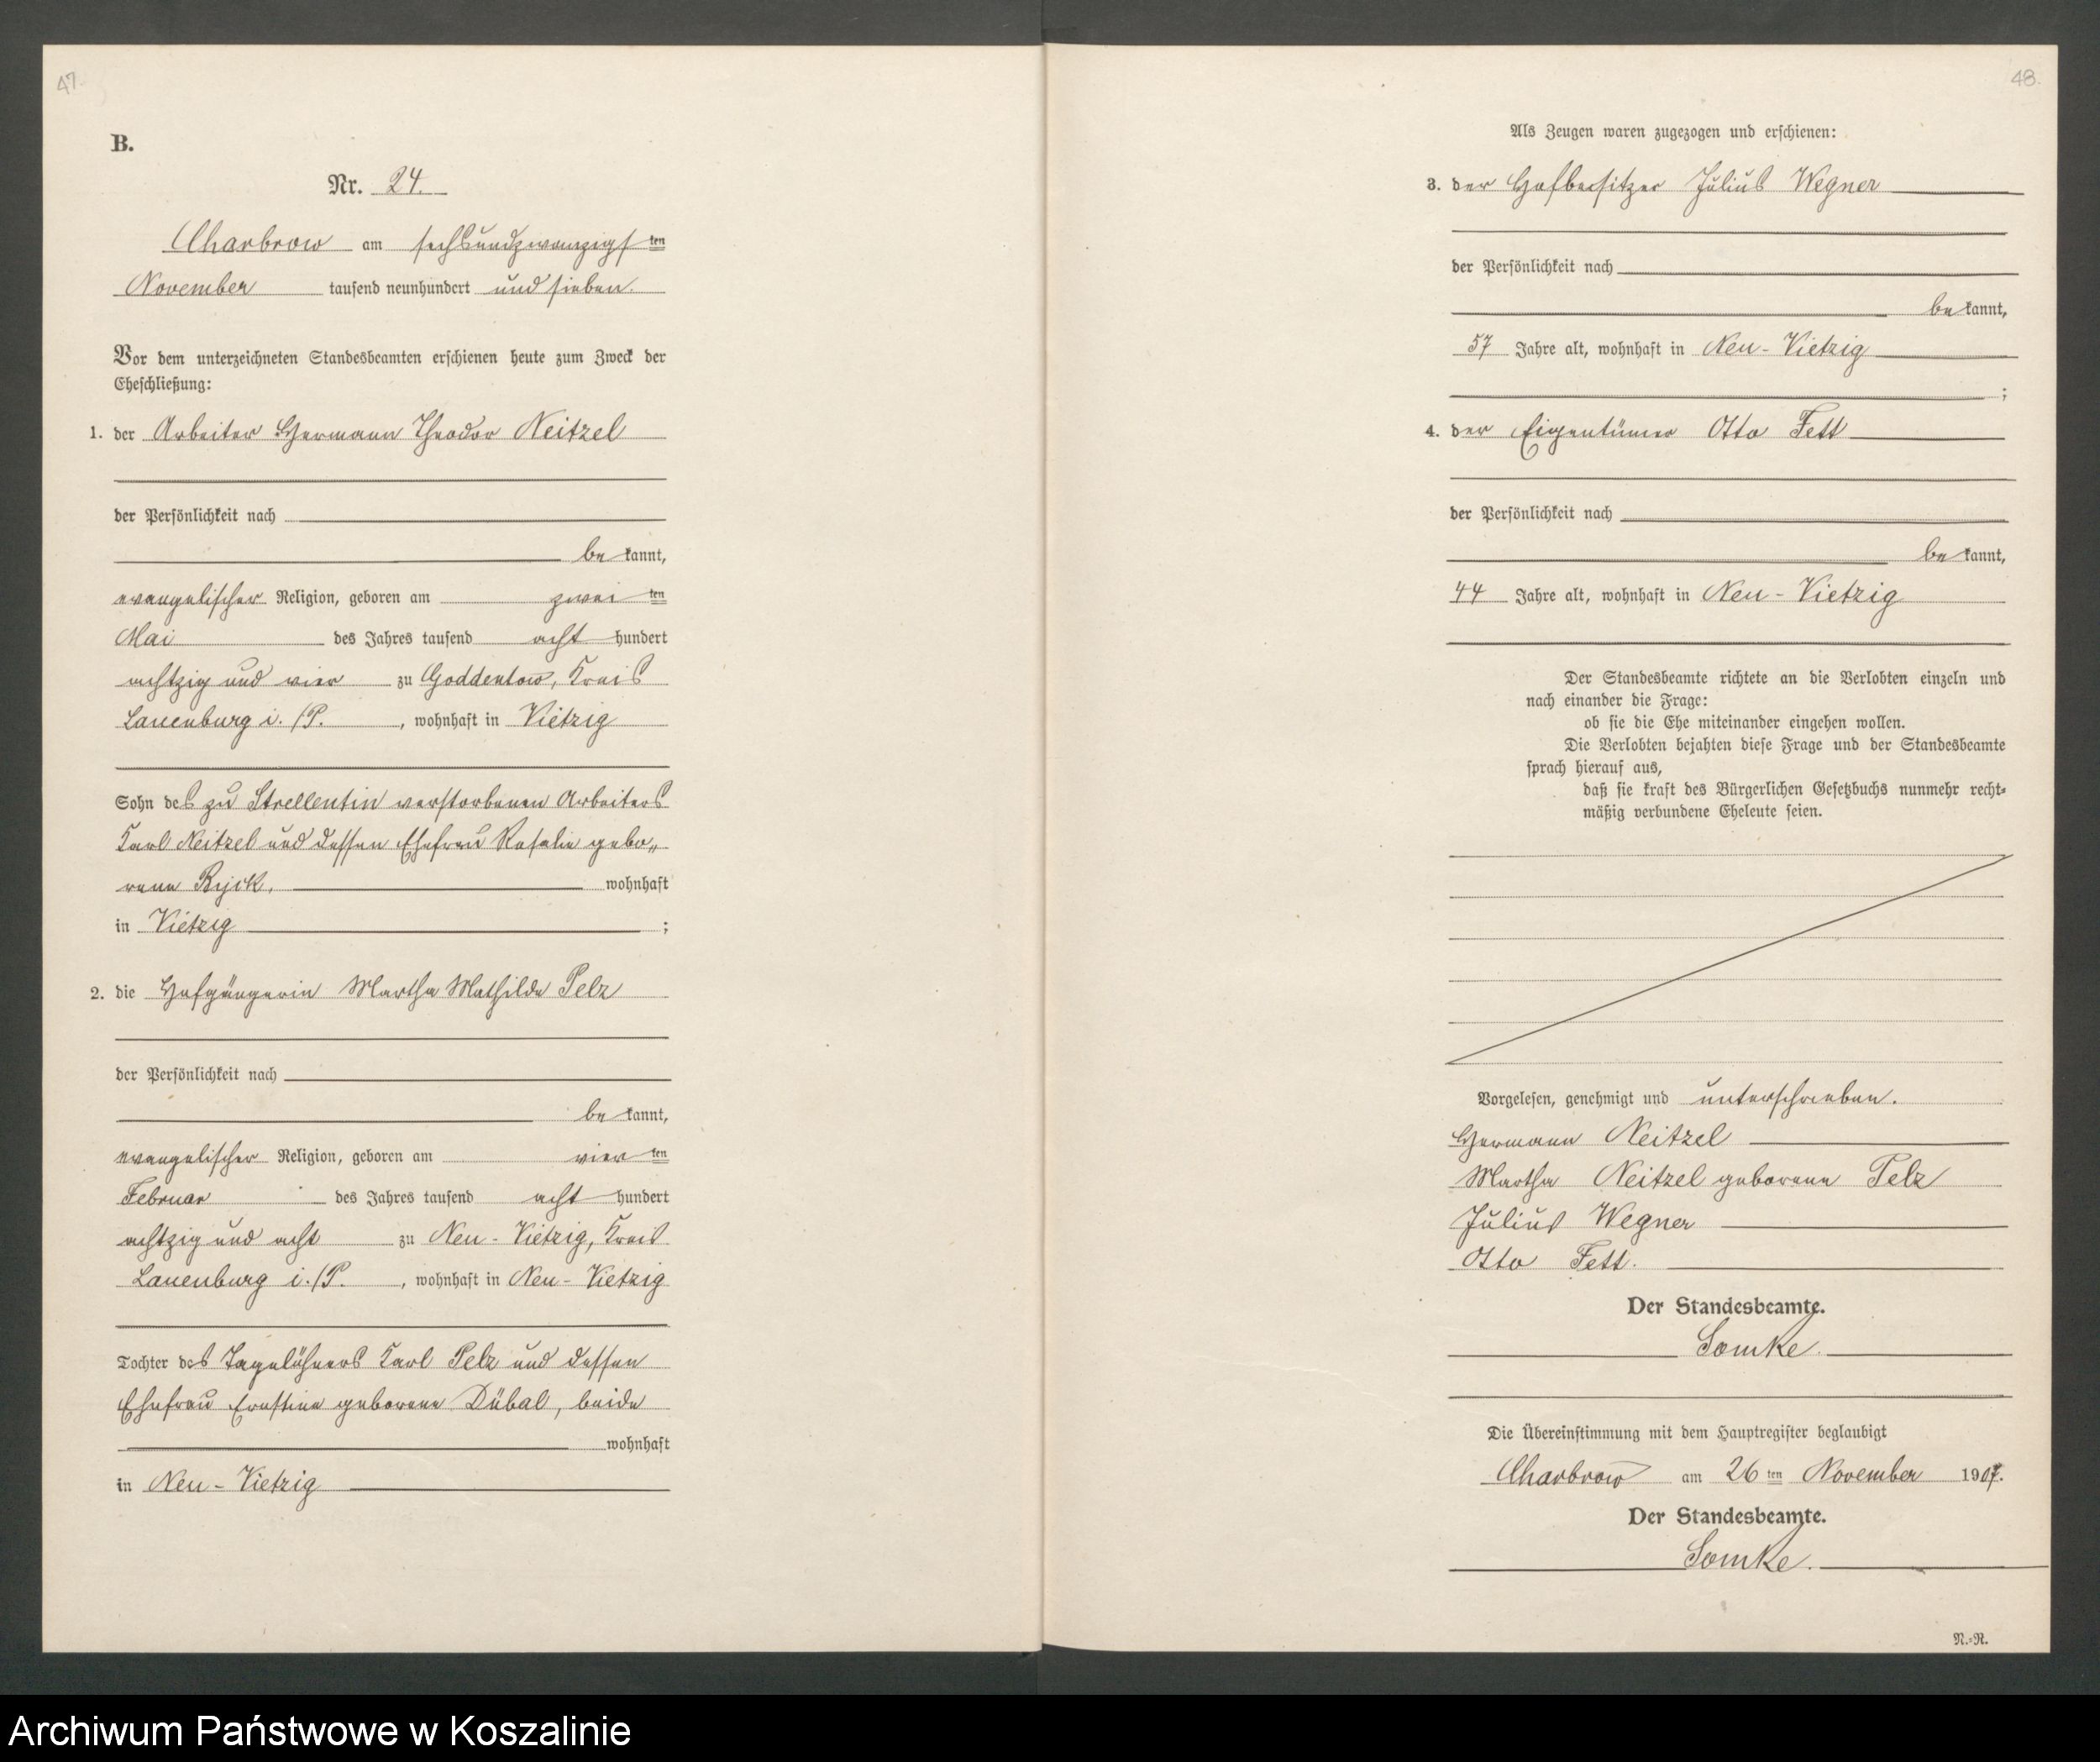 47.
B.
Nr. 24.
Charbrow am sechsundzwanzigsten
November tausend neunhundert und sieben.
Vor dem unterzeichneten Standesbeamten erschienen heute zum Zweck der
Eheschließung:
1. der Arbeiter Hermann Theodor Neitzel
der Persönlichkeit nach
bekannt,
evangelischer Religion, geboren am zweiten
Mai des Jahres tausend acht hundert
achtzig und vier zu Goddentow, Kreis
Lauenburg i./P. , wohnhaft in Vietzig
Sohn des zu Strellentin verstorbenen Arbeiters
Karl Neitzel und dessen Ehefrau Rosalie gebo„
rene Byck, wohnhaft
in Vietzig ;
2. die Hofgängerin Martha Mathilde Pelz
der Persönlichkeit nach
bekannt,
evangelischer Religion, geboren am vierten
Februar des Jahres tausend acht hundert
achtzig und acht zu Neu-Vietzig, Kreis
Lauenburg i./P. , wohnhaft in Neu-Vietzig
Tochter des Tagelöhners Karl Pelz und dessen
Ehefrau Ernstine geborene Dübal, beide
wohnhaft
in Neu-Vietzig
48.
Als Zeugen waren zugezogen und erschienen:
3. der Hofbesitzer Julius Wegner
der Persönlichkeit nach
bekannt,
57 Jahre alt, wohnhaft in Neu-Vietzig
;
4. der Eigentümer Otto Fett
der Persönlichkeit nach
bekannt,
44 Jahre alt, wohnhaft in Neu-Vietzig
Der Standesbeamte richtete an die Verlobten einzeln und
nach einander die Frage:
ob sie die Ehe miteinander eingehen wollen.
Die Verlobten bejahten diese Frage und der Standesbeamte
sprach hierauf aus,
daß sie kraft des Bürgerlichen Gesetzbuchs nunmehr recht-
mäßig verbundene Eheleute seien.
Vorgelesen, genehmigt und unterschrieben.
Hermann Neitzel
Martha Neitzel geborene Pelz
Julius Wegner
Otto Fett.
Der Standesbeamte.
Somke.
Die Übereinstimmung mit dem Hauptregister beglaubigt
Charbrow am 26ten November 1907.
Der Standesbeamte.
Somke.
N.-R.
Archiwum Państwowe w Koszalinie